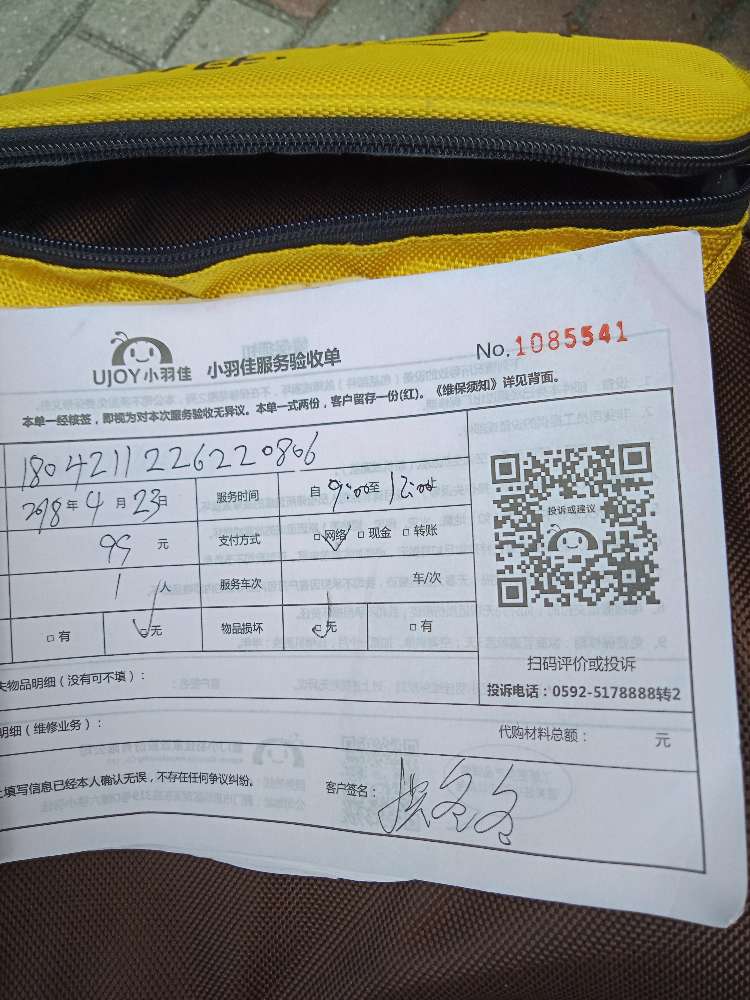 No. 1085541
UJOY小羽佳 小羽佳服务验收单
本单一经核签，即视为对本次服务验收无异议。本单一式两份，客户留存一份(红)。《维保须知》详见背面。
1804211226220806
2018年4月23日 服务时间 自9:00至12:00止
99元 支付方式 □网络 □现金 □转账
1人 服务车次 车/次
□有 □无 物品损坏 □无 □有
投诉或建议
扫码评价或投诉
投诉电话：0592-5178888转2
失物品明细（没有可不填）：
明细（维修业务）：
代购材料总额： 元
上填写信息已经本人确认无误，不存在任何争议纠纷。
客户签名：